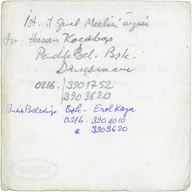 İst. İl Genel Meclisi Üyesi
Av. Hasan Kocabaş
Pendik Bel. Bşk.
Danışmanı
0216. 3901752
3903620
Pendik Belediye Bşk. Erol Kaya
0216- 3904010
3903620